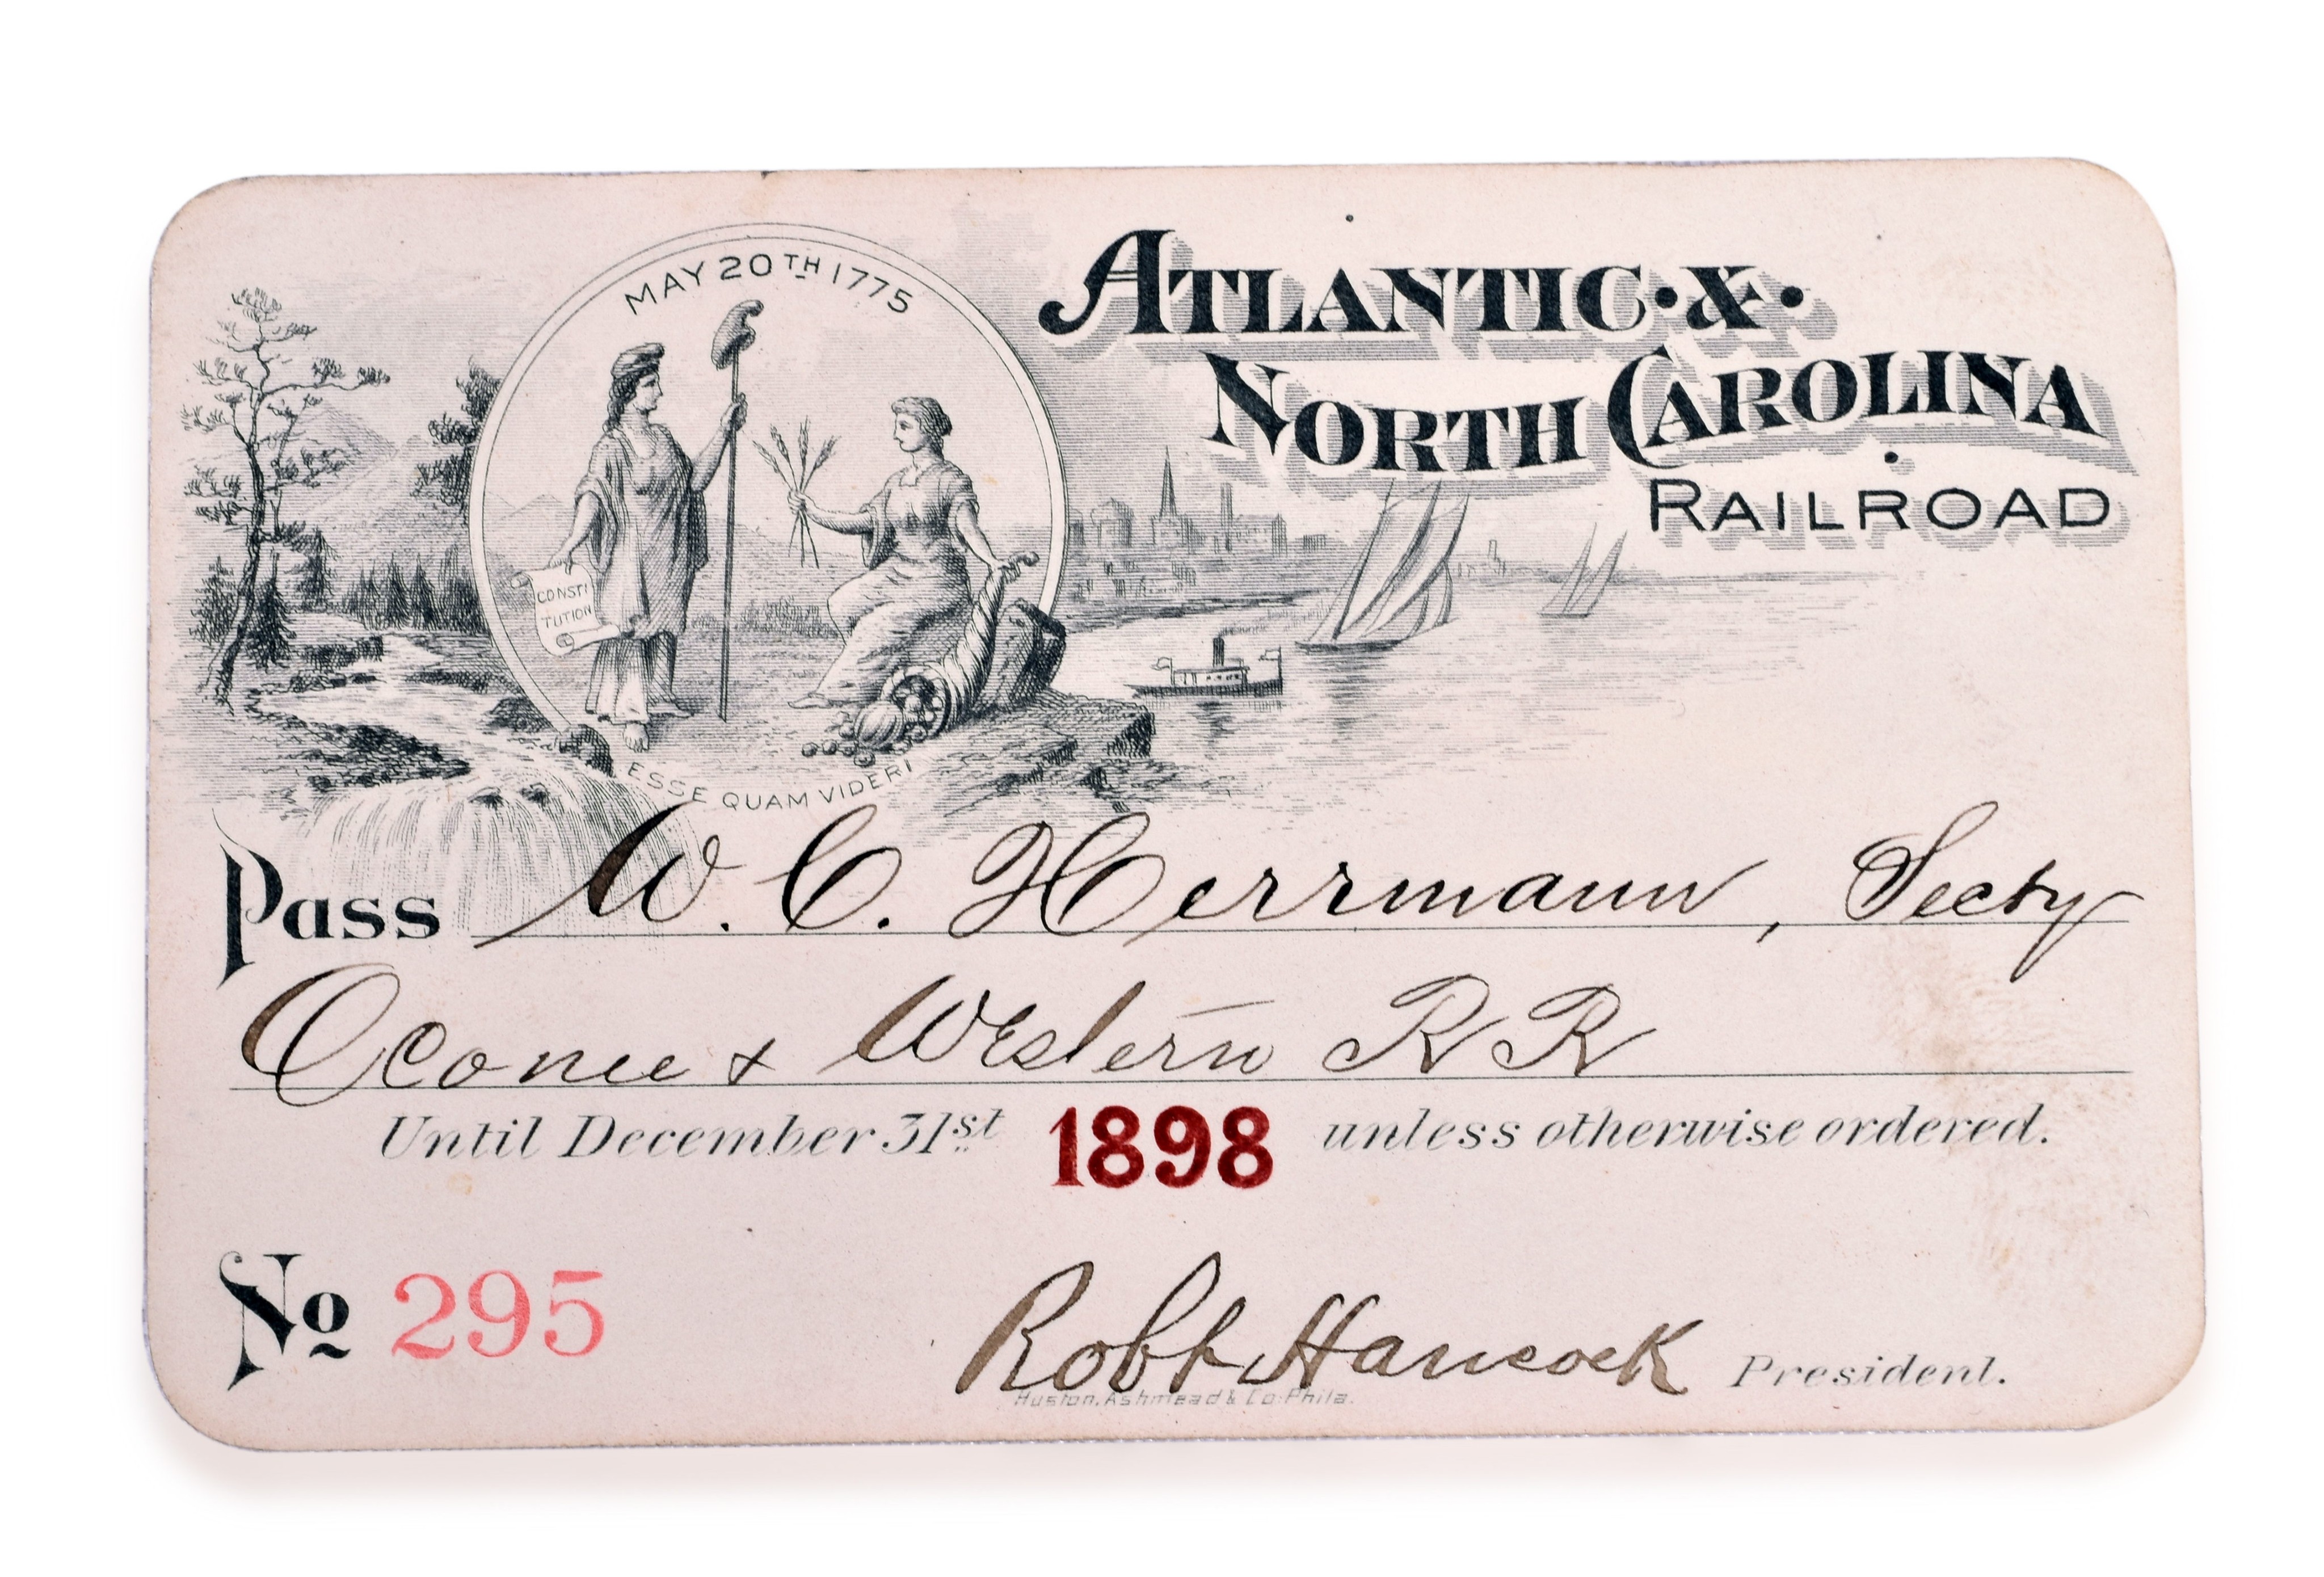 MAY 20TH 1775
CONSTI
TUTION
ESSE QUAM VIDERI
ATLANTIC · & ·
NORTH CAROLINA
RAILROAD
Pass W. C. Herrmann, Secty
Oconee & Western RR
Until December 31st 1898 unless otherwise ordered.
No 295
Robt Hancock President.
Huston, Ashmead & Co. Phila.